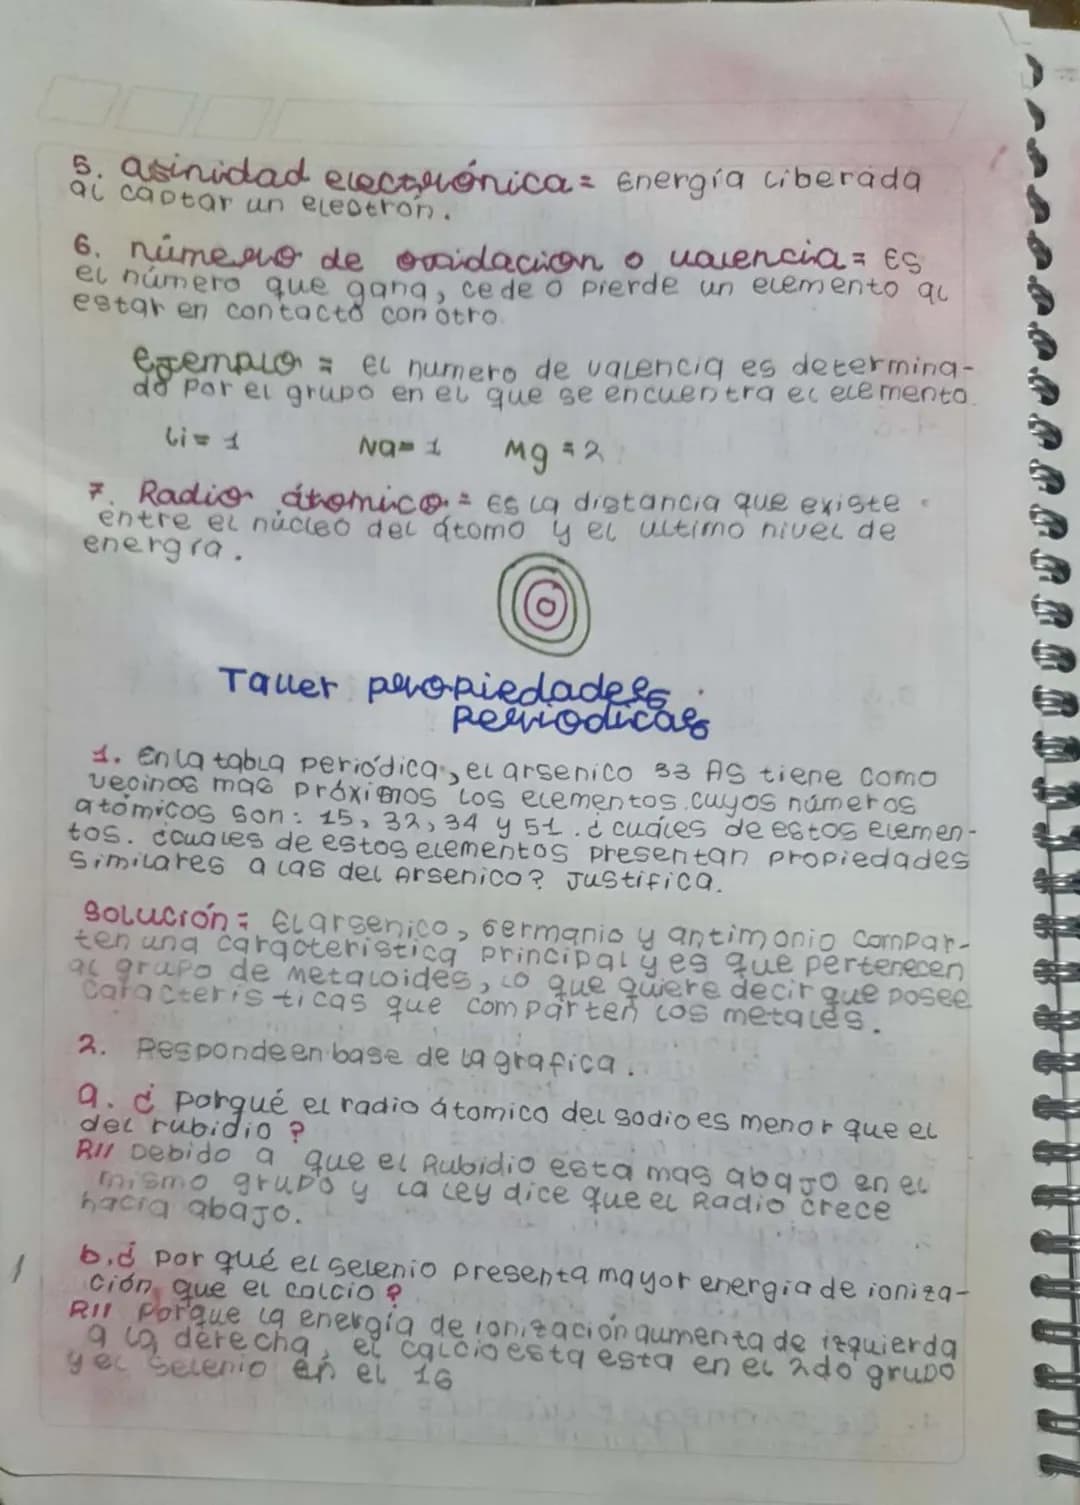 5. afinidad electrónica = Energía liberada
al captar un electrón.
6. número de oxidacion o valencia = Es
el número que gana, cede o pierde un elemento al
estar en contacto con otro.
ejemplo = El numero de valencia es determina-
do por el grupo en el que se encuentra el elemento.
Li = 1 Na = 1 Mg = 2
7. Radio átomico = Es la distancia que existe
entre el núcleo del átomo y el ultimo nivel de
energía.
Taller propiedades
Periodicas
1. En la tabla periódica, el arsenico 33 AS tiene como
vecinos mas próximos los elementos cuyos números
atómicos son: 15, 32, 34 y 51. ¿ cuáles de estos elemen-
tos. ¿cuales de estos elementos presentan propiedades
similares a las del Arsenico? Justifica.
Solución = El arsenico, Germanio y antimonio compar-
ten una característica principal y es que pertenecen
al grupo de metaloides, lo que quiere decir que posee
características que comparten los metales.
2. Responde en base de la grafica.
a. ¿ Porqué el radio átomico del sodio es menor que el
del rubidio ?
R// Debido a que el Rubidio esta mas abajo en el
mismo grupo y la ley dice que el Radio crece
hacia abajo.
b. ¿ Por qué el selenio presenta mayor energia de ioniza-
ción que el calcio ?
R// Porque la energía de ionización aumenta de izquierda
a la derecha, el calcio esta esta en el 2do grupo
y el selenio en el 16